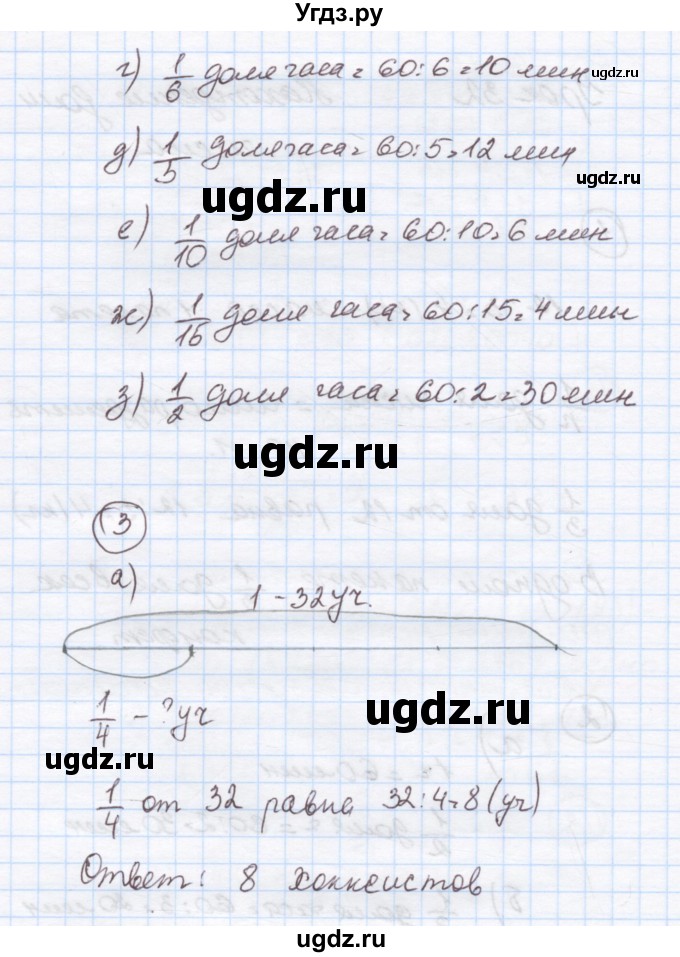 Угдз.ру
г) 1/6 доля часа = 60:6=10 мин
ugdz.ru
д) 1/5 доля часа = 60:5=12 мин
ugdz.ru
ugdz.ru
е) 1/10 доля часа = 60:10=6 мин
ж) 1/15 доля часа = 60:15=4 мин
з) 1/2 доля часа = 60:2=30 мин
ugdz.ru
3
а)
1 - 32 уч.
ugdz.ru
1/4 - ? уч
ugdz.ru
1/4 от 32 равна 32:4=8 (уч)
Ответ: 8 хоккеистов
ugdz.ru
ugdz.ru